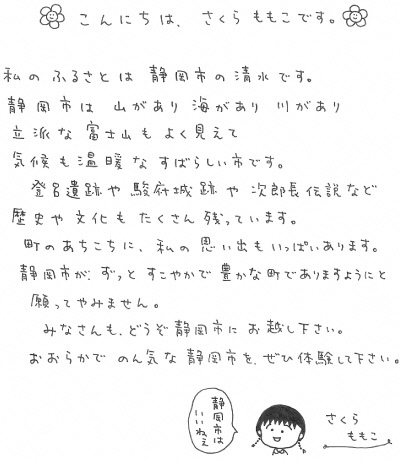 こんにちは、さくらももこです。
私のふるさとは 静岡市の清水です。
静岡市は 山があり 海があり 川があり
立派な 富士山も よく見えて
気候も温暖な すばらしい市です。
登呂遺跡や 駿府城跡や 次郎長伝説など
歴史や文化も たくさん残っています。
町のあちこちに、私の思い出もいっぱいあります。
静岡市が、ずっと すこやかで 豊かな町でありますようにと
願ってやみません。
みなさんも、どうぞ静岡市に お越し下さい。
おおらかで のん気な 静岡市を、ぜひ体験して下さい。
静岡市は
いいねぇ
さくら
ももこ